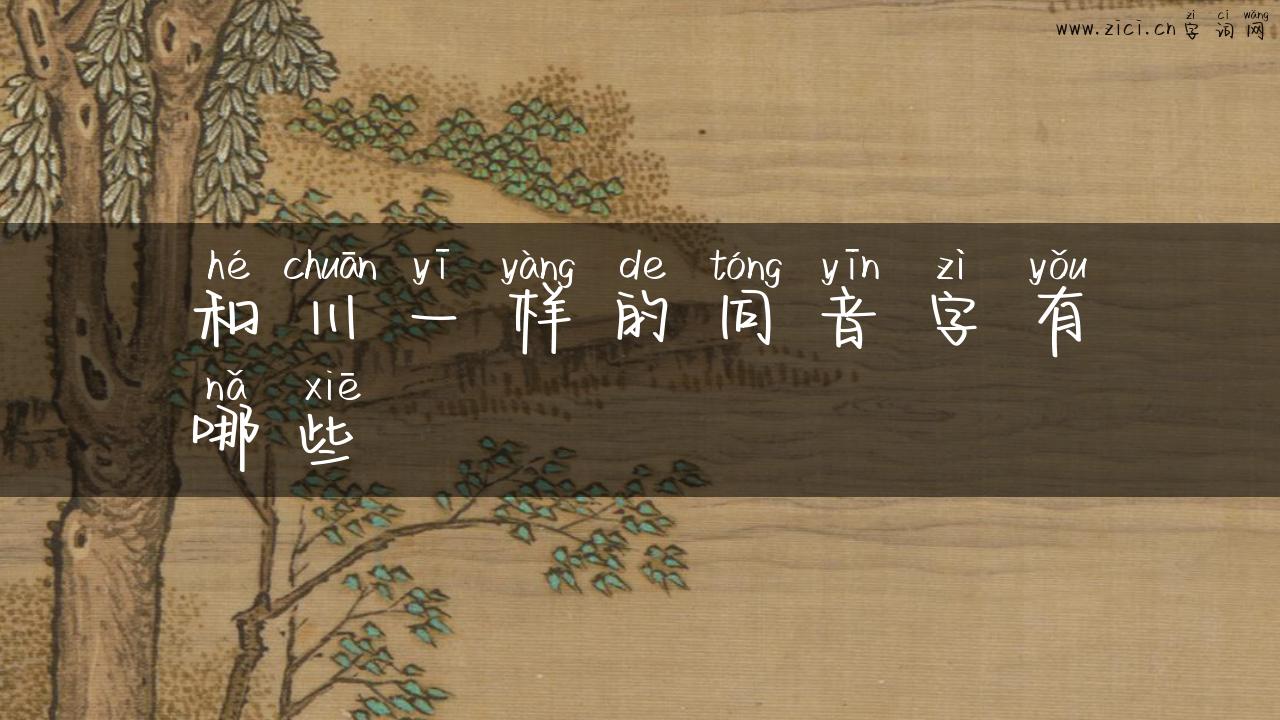 zì cí wǎng
www.zici.cn 字词网
hé chuān yī yàng de tóng yīn zì yǒu
和川一样的同音字有
nǎ xiē
哪些